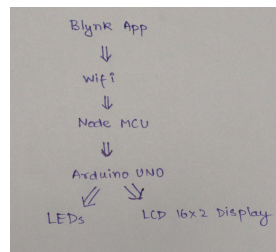 Blynk App
Wifi
Node MCU
Arduino UNO
LEDs
LCD 16x2 Display